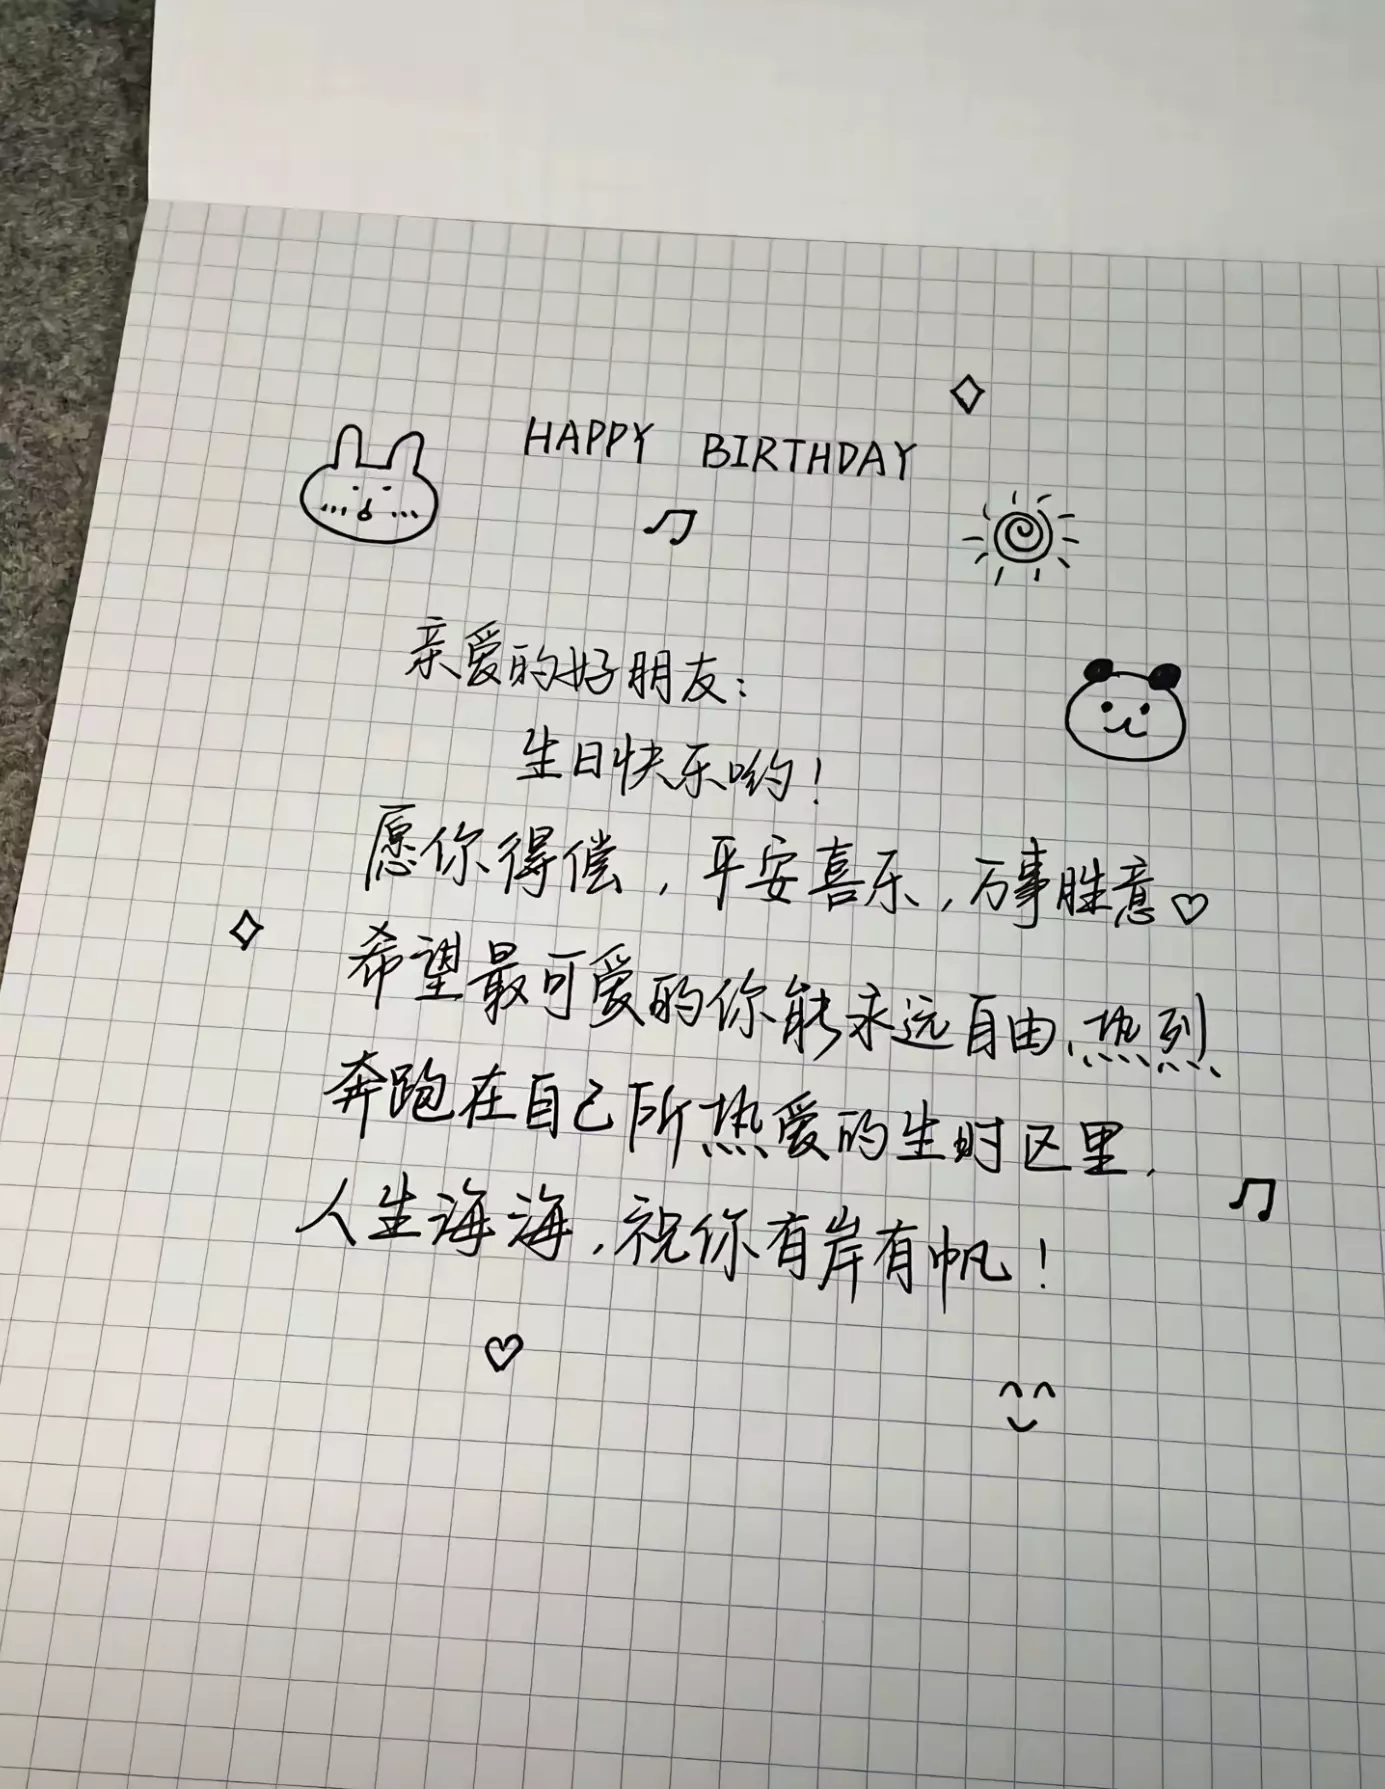 HAPPY BIRTHDAY
亲爱的好朋友：
生日快乐哟！
愿你得偿，平安喜乐，万事胜意♡
希望最可爱的你能永远自由、热烈
奔跑在自己所热爱的生时区里，
人生海海，祝你有岸有帆！